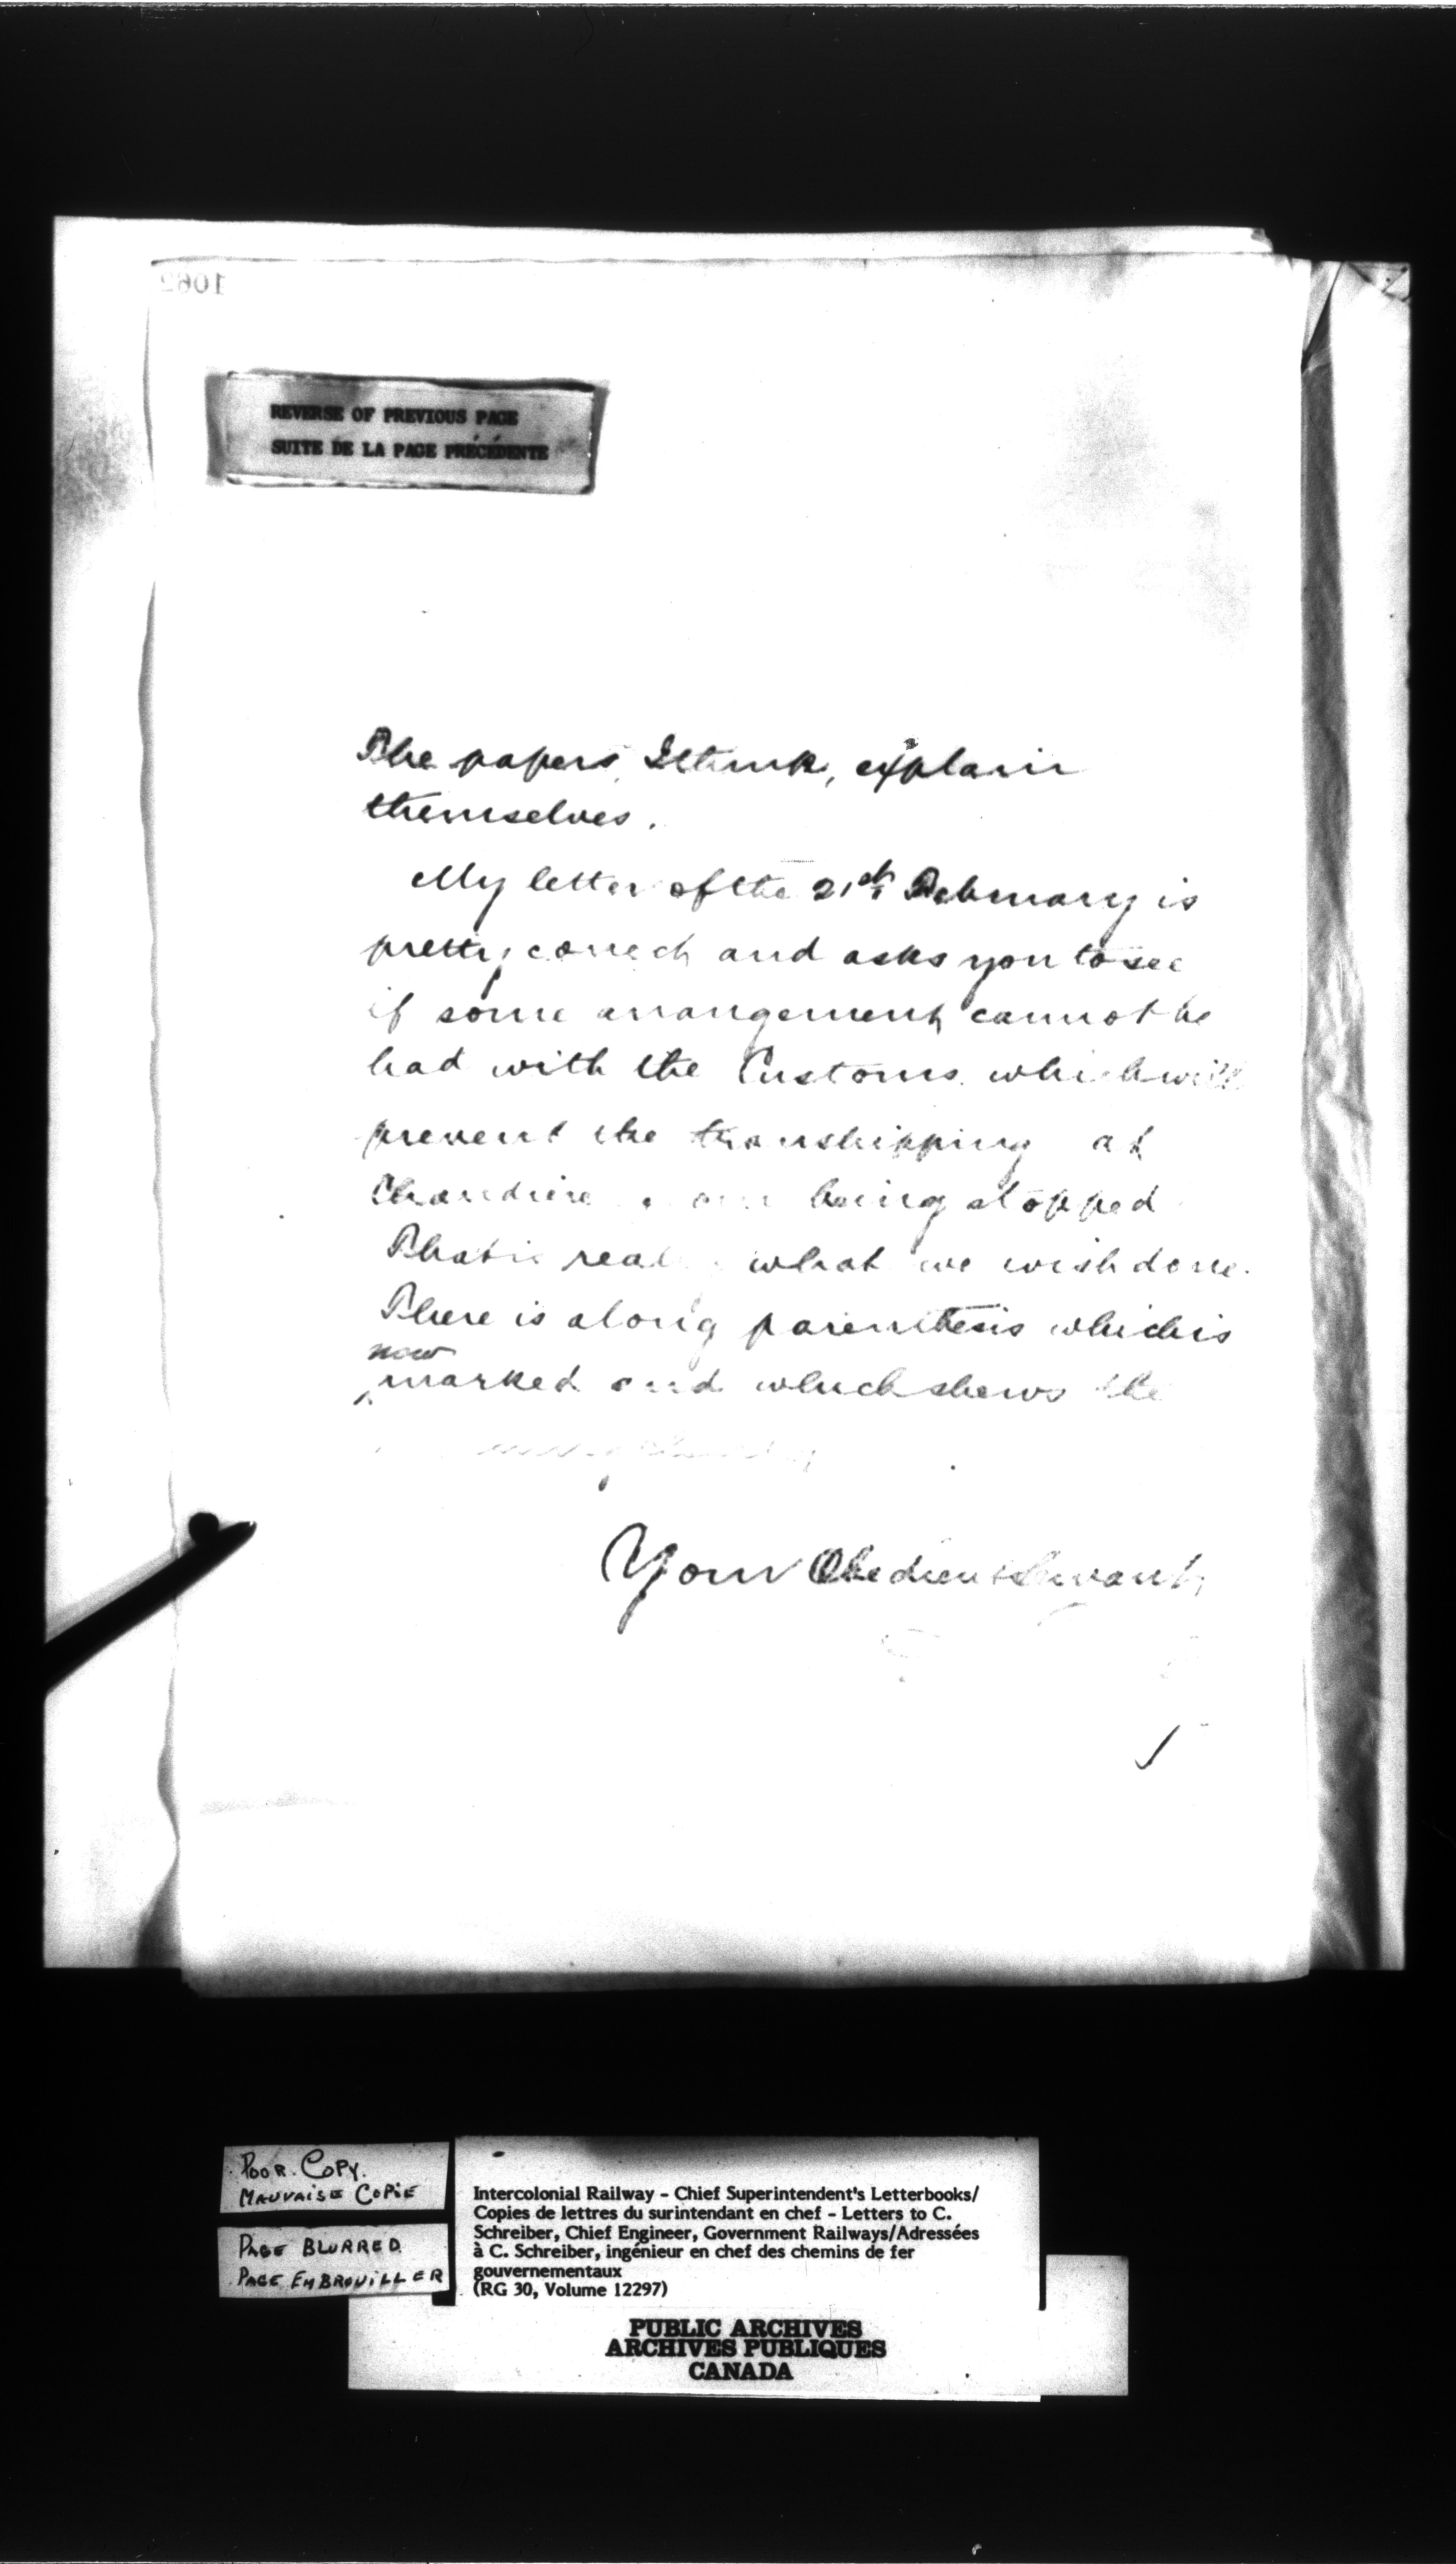 1062
REVERSE OF PREVIOUS PAGE
SUITE DE LA PAGE PRÉCÉDENTE
The papers, I think, explain
themselves.
My letter of the 21st February is
pretty correct and asks you to see
if some arrangement cannot be
had with the Customs which will
prevent the transhipping at
Chaudiere being stopped
That is really what we wish done.
There is a long parenthesis which is
now
marked and which shews the
Your Obedient Servant
POOR. COPY.
MAUVAISE COPIE
PAGE BLURRED.
PAGE EMBROUILLER
Intercolonial Railway - Chief Superintendent's Letterbooks/
Copies de lettres du surintendant en chef - Letters to C.
Schreiber, Chief Engineer, Government Railways/Adressées
à C. Schreiber, ingénieur en chef des chemins de fer
gouvernementaux
(RG 30, Volume 12297)
PUBLIC ARCHIVES
ARCHIVES PUBLIQUES
CANADA